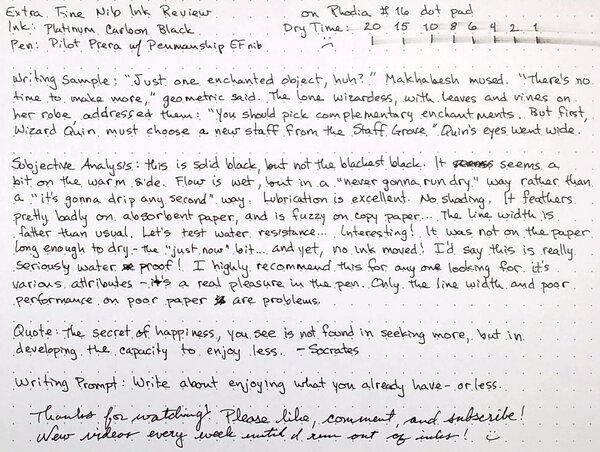 Extra Fine Nib Ink Review on Rhodia #16 dot pad
Ink: Platinum Carbon Black Dry Time: 20 15 10 8 6 4 2 1
Pen: Pilot Prera w/ Penmanship EF nib
Writing Sample: "Just one enchanted object, huh?" Makhabesh mused. "There's no
time to make more," geometric said. The lone wizardess, with leaves and vines on
her robe, addressed them: "You should pick complementary enchantments. But first,
Wizard Quin must choose a new staff from the Staff Grove." Quin's eyes went wide.
Subjective Analysis: this is solid black, but not the blackest black. It seems a
bit on the warm side. Flow is wet, but in a "never gonna run dry" way rather than
a "it's gonna drip any second" way. Lubrication is excellent. No shading. It feathers
pretty badly on absorbent paper, and is fuzzy on copy paper... The line width is
fatter than usual. Let's test water resistance... Interesting! It was not on the paper
long enough to dry - the "just now" bit.... and yet, no ink moved! I'd say this is really
seriously water proof! I highly recommend this for any one looking for it's
various attributes - it's a real pleasure in the pen. Only the line width and poor
performance on poor paper are problems.
Quote: The secret of happiness, you see is not found in seeking more, but in
developing the capacity to enjoy less. - Socrates
Writing Prompt: Write about enjoying what you already have - or less.
Thanks for watching! Please like, comment, and subscribe!
New videos every week until I run out of inks! :)